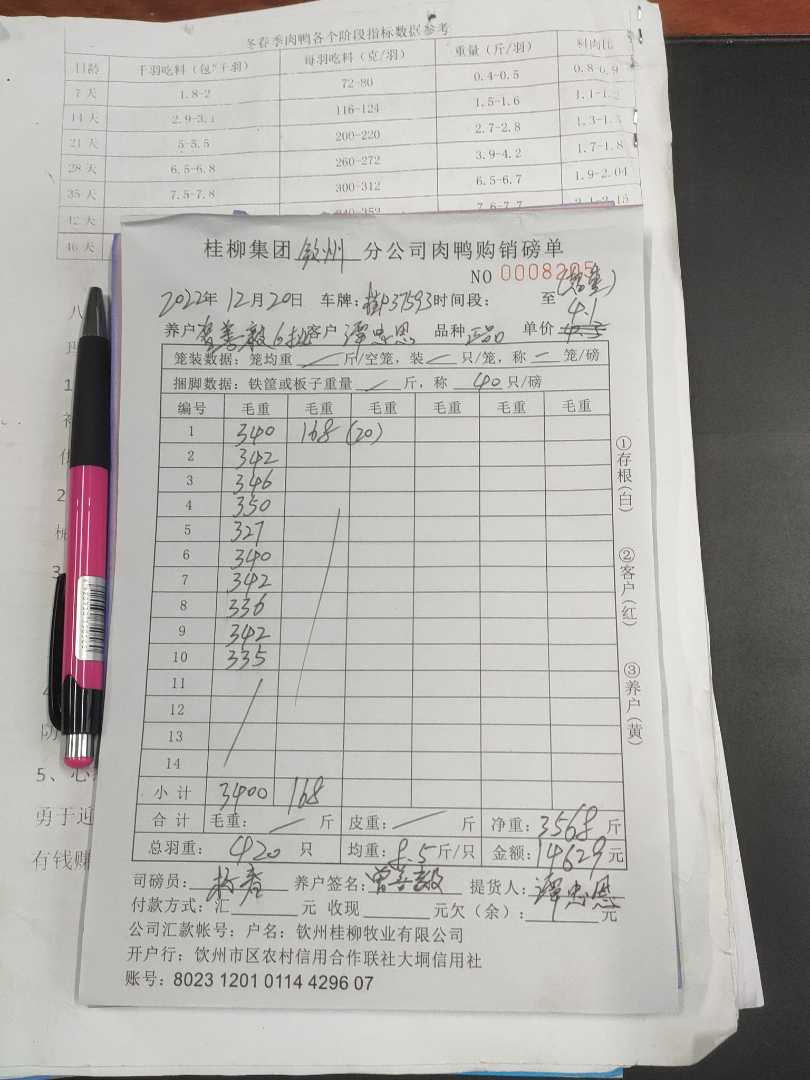 冬春季肉鸭各个阶段指标数据参考
日龄 千羽吃料（包/千羽） 每羽吃料（克/羽） 重量（斤/羽） 料肉比
7天 1.8-2 72-80 0.4-0.5 0.8-0.9
14天 2.9-3.1 116-124 1.5-1.6 1.1-1.2
21天 5-5.5 200-220 2.7-2.8
28天 6.5-6.8 260-272 3.9-4.2 1.7-1.8
35天 7.5-7.8 300-312 6.5-6.7 1.9-2.04
42天 7.6-7.7
46天
桂柳集团 钦州 分公司肉鸭购销磅单
NO 0008205
2022年12月20日 车牌：桂P37593 时间段： 至
养户 曾善毅 客户 谭忠恩 品种 正品 单价 4.1
笼装数据：笼均重 斤/空笼，装 只/笼，称 笼/磅
捆脚数据：铁筐或板子重量 斤，称 40 只/磅
编号 毛重 毛重 毛重 毛重 毛重 毛重
1 340 168 (20)
2 342
3 346
4 350
5 327
6 340
7 342
8 336
9 342
10 335
11
12
13
14
小计 3400 168
合计 毛重： 斤 皮重： 斤 净重：3568斤
总羽重：420 只 均重：8.5斤/只 金额：14629元
司磅员： 养户签名：曾善毅 提货人：谭忠恩
付款方式：汇 元 收现 元欠（余）： 元
公司汇款帐号：户名：钦州桂柳牧业有限公司
开户行：钦州市区农村信用合作联社大垌信用社
账号：8023 1201 0114 4296 07
①存根（白）
②客户（红）
③养户（黄）
5、心
勇于迎
有钱赚